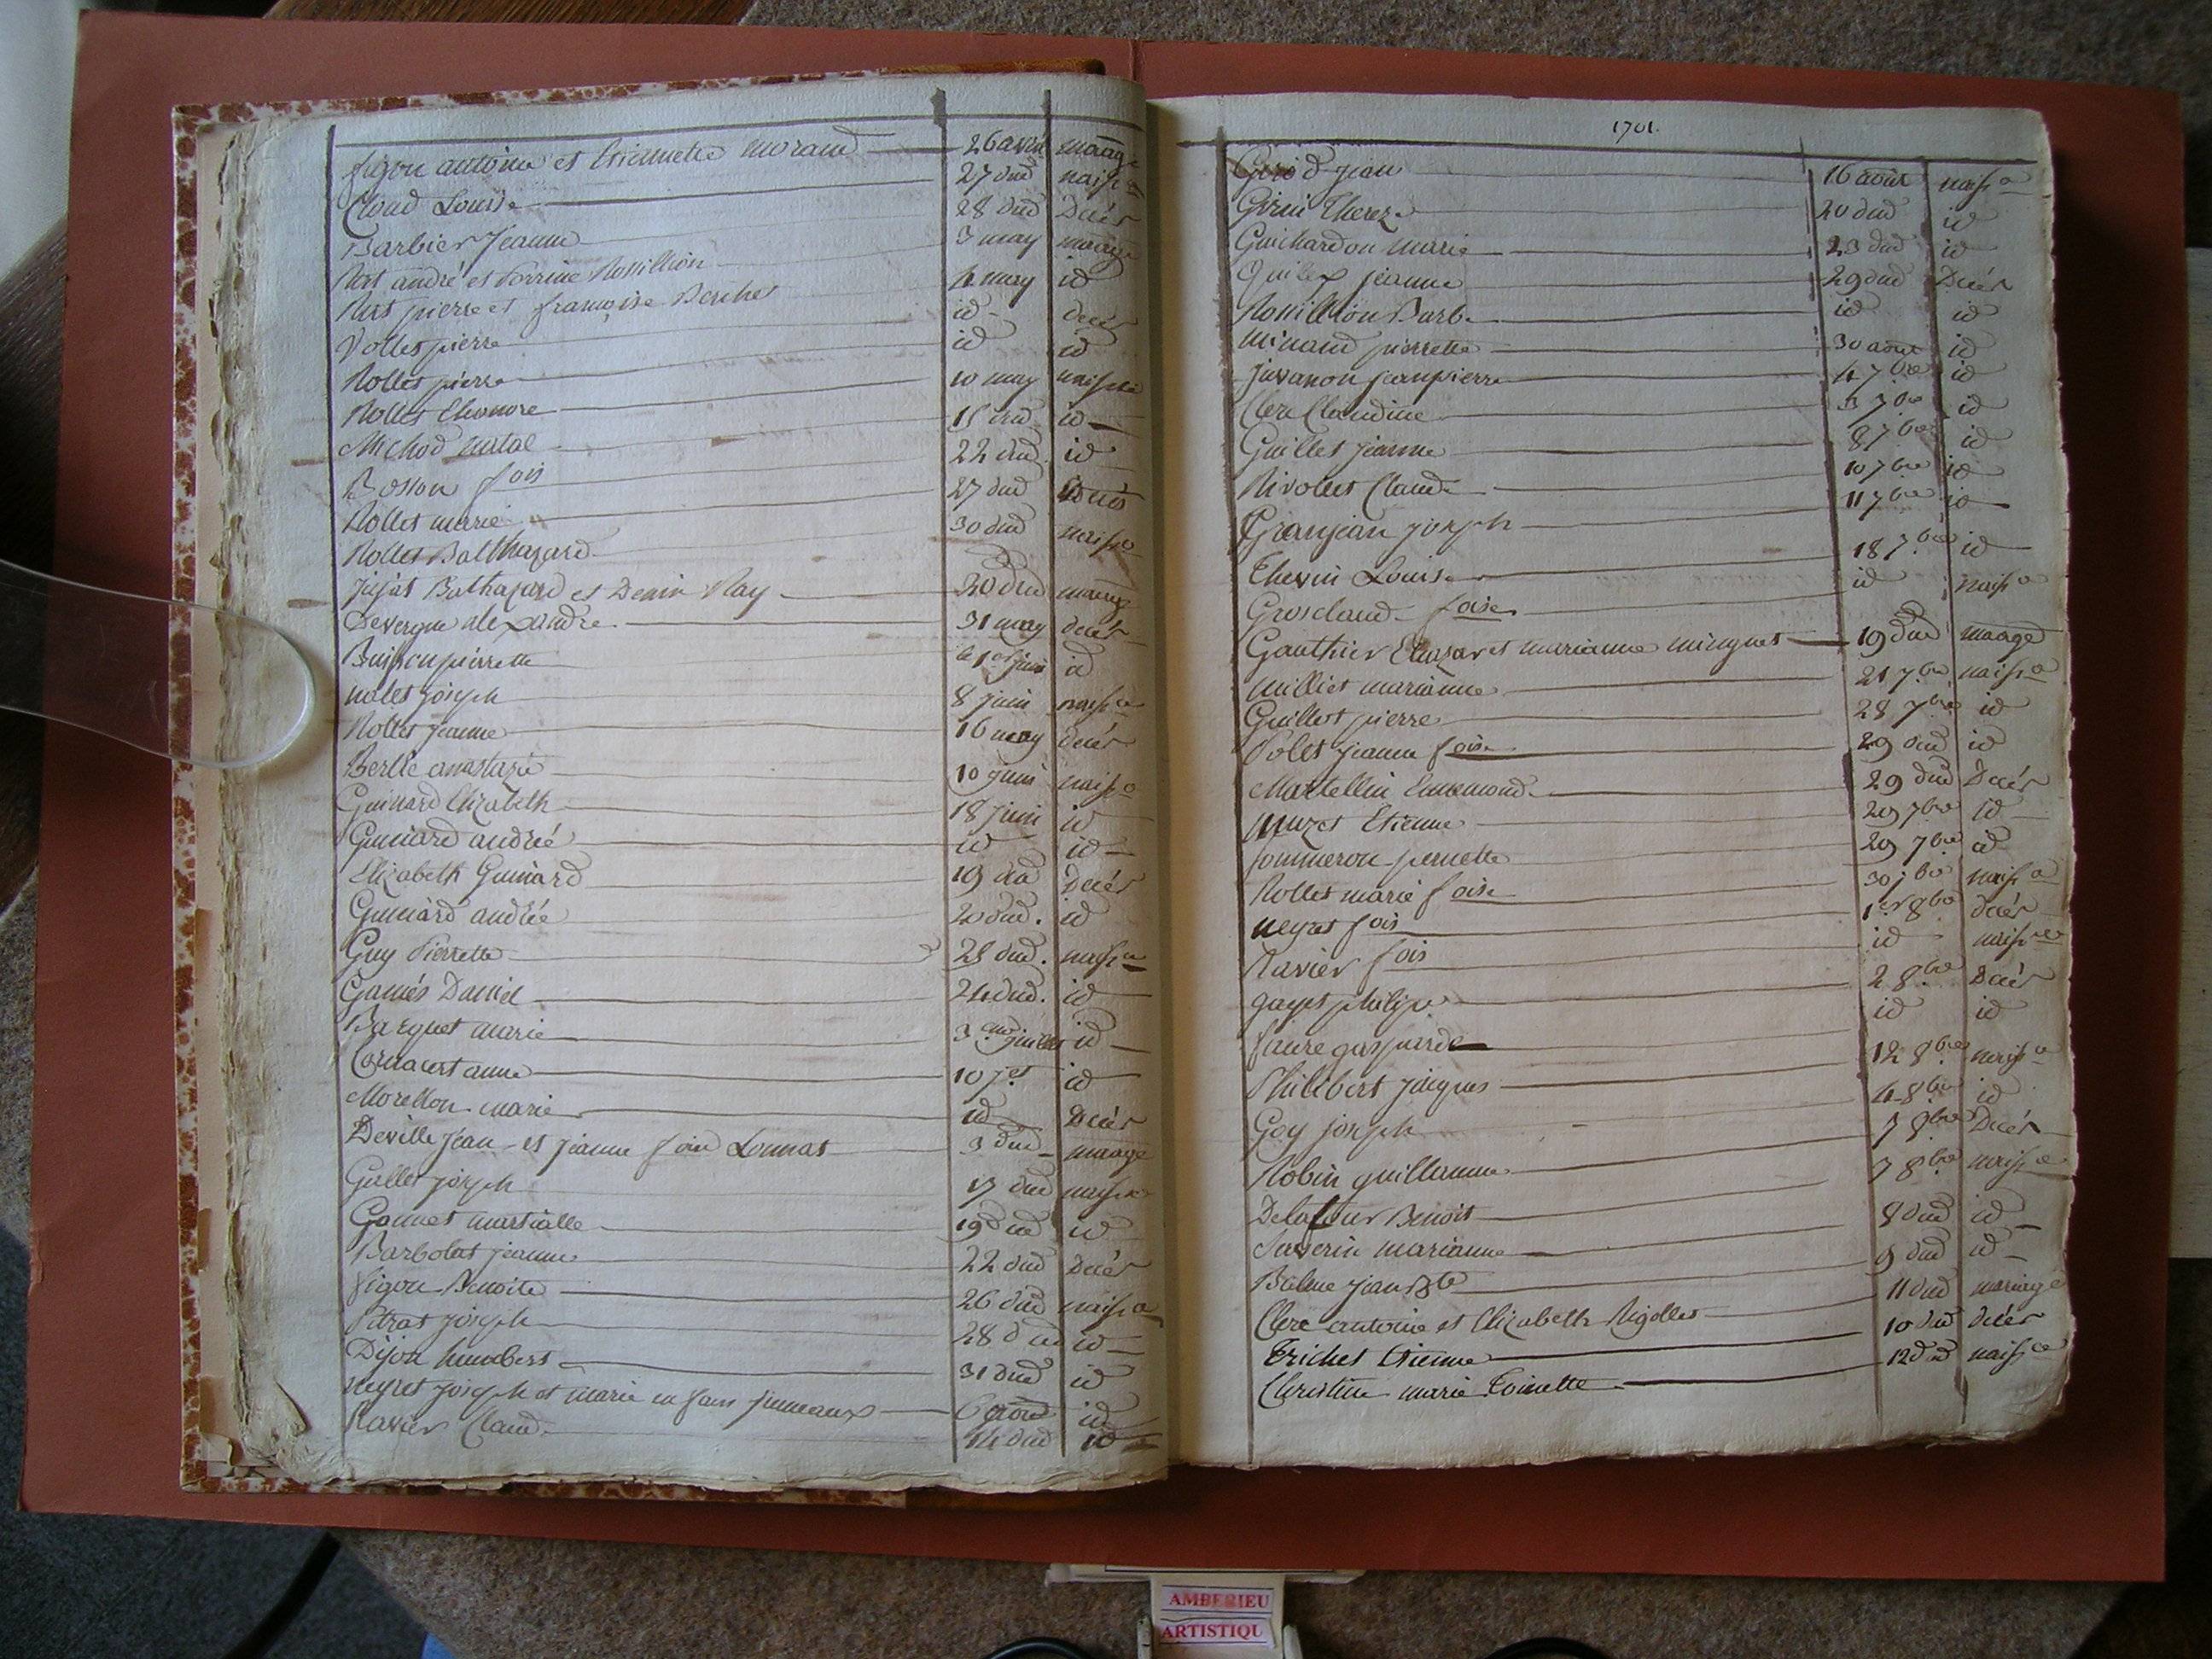 figon antoine et Etiennette morand 26 avril maage
Cloud Louise 27 dud naissce
Barbier Jeanne 28 dud Décés
Rat andré et Perrine Rossillion 3 may maage
Rat pierre et françoise Berche 4 may id
Vollet pierre id decés
Rollet pierre id id
Rollet Eleonore 10 may naissce
Michod natal 15 dud id
Bosson fois 22 dud id
Rollet marie 27 dud Décés
Rollet Balthazard 30 dud naissce
Jujat Balthazard et Denise Ray 20 dud maage
Devergne alexandre 31 may decés
Buisson pierrette le 1er juin id
nalet joseph 8 juin naissce
Rollet jeanne 16 may décés
Berlie anastazie 10 juin naissce
Guinard Elizabeth 18 juin id
Guinard andréé id id
Elizabeth Guinard 19 dud Décés
Guinard andréé 20 dud. id
Guy Pierrette 28 dud. naissce
Garnés Daniel 24 dud. id
Barquet marie 3 juillet id
Cornacert anne 10 jet id
Morellon marie id Décés
Deville Jean et jeanne foise Lournat 3 dud maage
Gallet joseph 17 dud naissce
Gonnet martialle 19 dud id
Barbolat jeanne 22 dud Décés
figon Benoite 26 dud naissce
Pitrat joseph 28 dud id
Dijon humbert 31 dud id
neyret joseph et marie enfans jumeaux 6 aout id
Ravier Claud 14 dud id
1701.
Girod jean 16 aout naissce
Girin Thereze 20 dud id
Guichardon marie 23 dud id
Quilex jeanne 29 dud Décés
Rossillion Barbe id id
Minand pierrette 30 aout id
juvanon jeanpierre 4 7bre id
Clerc Claudine 3 7bre id
Guillet jeanne 8 7bre id
Rivollet Claude 10 7bre id
Granjean joseph 11 7bre id
Thevenin Louise 18 7bre id
Grosclaud foise id naissce
Gauthier Elnazar et marianne minguet 19 dud maage
Milliet marianne 21 7bre naissce
Guillot pierre 28 7bre id
Polet jeanne foise 29 dud id
Martellin Ennemond 29 dud Décés
Muzet Etienne 29 7bre id
Jommeron pernette 29 7bre id
Rollet marie foise 30 7bre naissce
neyret fois 1er 8bre décés
Ravier fois id naissce
gayet philipe 2 8bre Décés
faure gasparde id id
Philibert jacques 12 8bre naissce
Goy joseph 4 8bre id
Robin guillaume 7 8bre Décés
Delafour Benoit 7 8bre naissce
Severin marianne 8 dud id
Balme jean Bte 9 dud id
Clerc antoine et Elizabeth Rigollet 11 dud mariage
Trichet Etienne 10 dud décés
Christin marie Toinette 12 dud naissce
AMBERIEU
ARTISTIQU